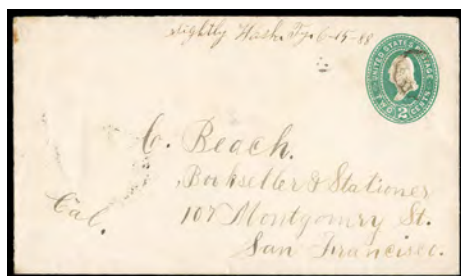 Sightly Wash. Ty. 6-15-88
UNITED STATES POSTAGE
TWO 2 CENTS
C. Beach.
Bookseller & Stationer
107 Montgomry St.
San Francisco.
Cal.